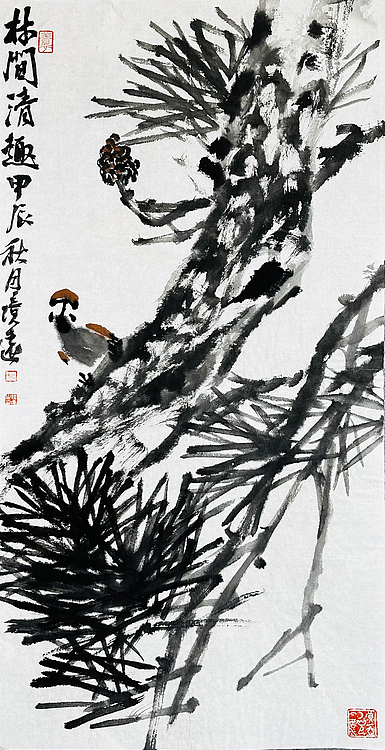 林間清趣甲辰秋月